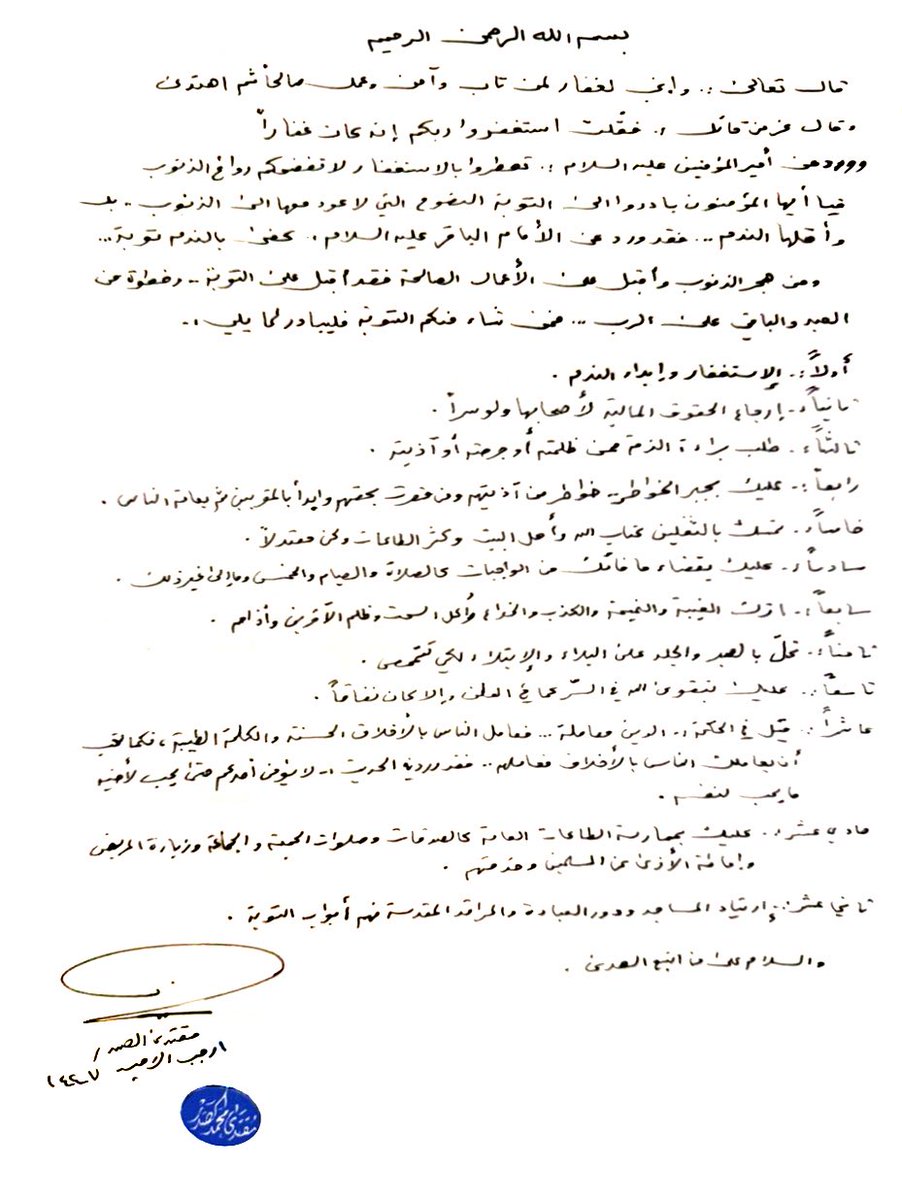 بسم الله الرحمن الرحيم
قال تعالى :. وإني لغفار لمن تاب وآمن وعمل صالحاً ثم اهتدى
وقال عز من قائل :. فقلت استغفروا ربكم إنه كان غفاراً
وورد عن أمير المؤمنين عليه السلام :. تعطروا بالاستغفار لا تفضحكم روائح الذنوب
فيا أيها المؤمنون بادروا الى التوبة النصوح التي لا عود معها الى الذنوب .. بل
وأقلها الندم ... فقد ورد عن الأمام الباقر عليه السلام :. كفى بالندم توبة...
ومن هجر الذنوب وأقبل على الأعمال الصالحة فقد أقبل على التوبة .. وخطوة من
العبد والباقي على الرب ... فمن شاء منكم التوبة فليبادر لما يلي :.
أولاً:. الإستغفار وإبداء الندم .
ثانياً:. إرجاع الحقوق المالية لأصحابها ولو سراً .
ثالثاً:. طلب براءة الذمة ممن ظلمته أو جرحته أو آذيته .
رابعاً:. عليك بجبر الخواطر .. خواطر من آذيتهم ومن قصرت بحقهم وابدأ بالمقربين ثم بعامة الناس .
خامساً:. تمسك بالثقلين كتاب الله وأهل البيت وكثر الطاعات وكن معتدلاً .
سادساً:. عليك بقضاء ما فاتك من الواجبات كالصلاة والصيام والخمس وما إلى غير ذلك .
سابعاً:. اترك الغيبة والنميمة والكذب والخداع وأكل السحت وظلم الآخرين وأذاهم .
ثامناً:. تحلّ بالصبر والجلد على البلاء والإبتلاء لكي تتمحص .
تاسعاً:. عليك بتقوى الله في السّر كما في العلن وإلا كان نفاقاً .
عاشراً:. قيل في الحكمة :. الدين معاملة ... فعامل الناس بالأخلاق الحسنة والكلمة الطيبة ، فكما تحب
أن يعاملك الناس بالأخلاق فعاملهم .. فقد ورد في الحديث :. لا يؤمن أحدكم حتى يحب لأخيه
ما يحب لنفسه .
حادي عشر:. عليك بممارسة الطاعات العامة كالصدقات وصلوات الجمعة والجماعة وزيارة المريض
وإماطة الأذى عن المسلمين وخدمتهم .
ثاني عشر:. إرتياد المساجد ودور العبادة والمراقد المقدسة فهم أبواب التوبة .
والسلام على من اتبع الهدى .
مقتدى الصدر
١ رجب الاصب ١٤٤٧
مقتدى محمد الصدر